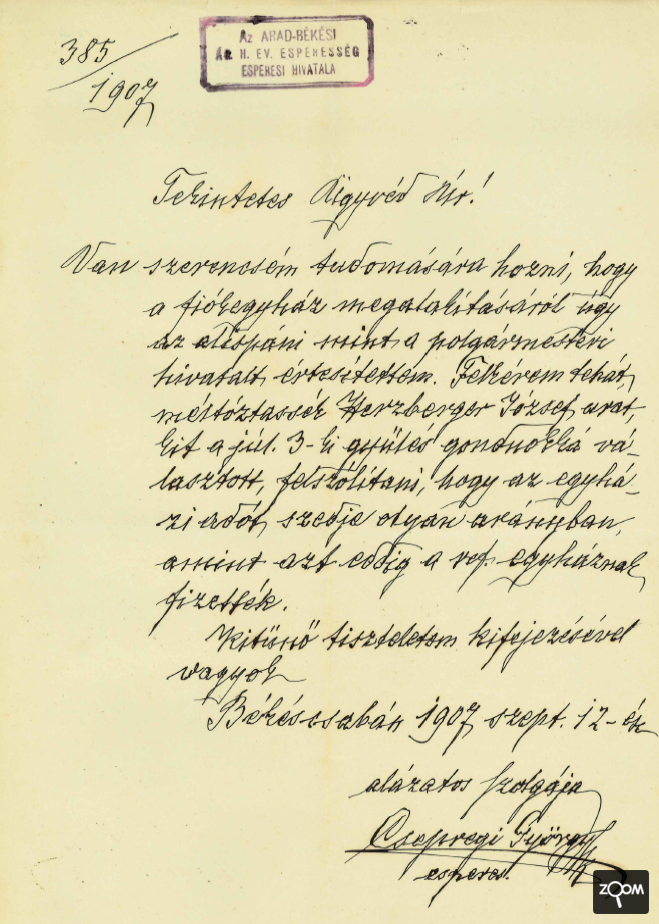 385/1907
Az ARAD-BÉKÉSI
ÁG. H. EV. ESPERESSÉG
ESPERESI HIVATALA
Tekintetes Ügyvéd Úr!
Van szerencsém tudomására hozni, hogy
a fiókegyház megalakításáról úgy
az alispáni mint a polgármesteri
hivatalt értesítettem. Felkérem tehát,
méltóztassék Herzberger József urat,
kit a júl. 3-ki gyűlés gondnokká vá-
lasztott, felszólítani, hogy az egyhá-
zi adót szedje olyan arányban,
amint azt eddig a ref. egyháznak
fizették.
Kitünő tiszteletem kifejezésével
vagyok
Békéscsabán 1907 szept. 12-én
alázatos szolgája
Csepregi György
esperes.
ZOOM